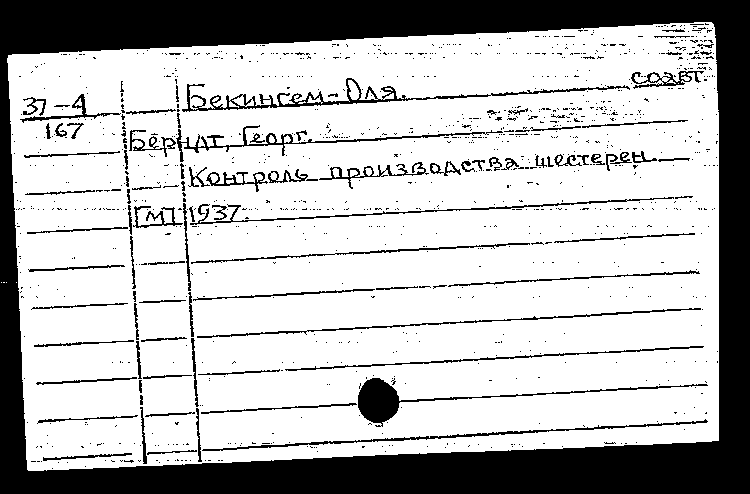 соавт.
37-4 Бекингем-Оля.
167
Берндт, Георг.
Контроль производства шестерен.
ГМП 1937.